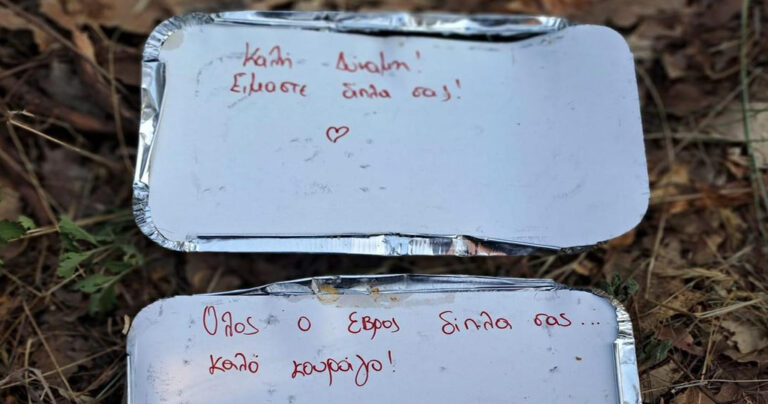 Καλή Δύναμη!
Είμαστε δίπλα σας!
Όλος ο Εβρος δίπλα σας...
καλό κουράγιο!